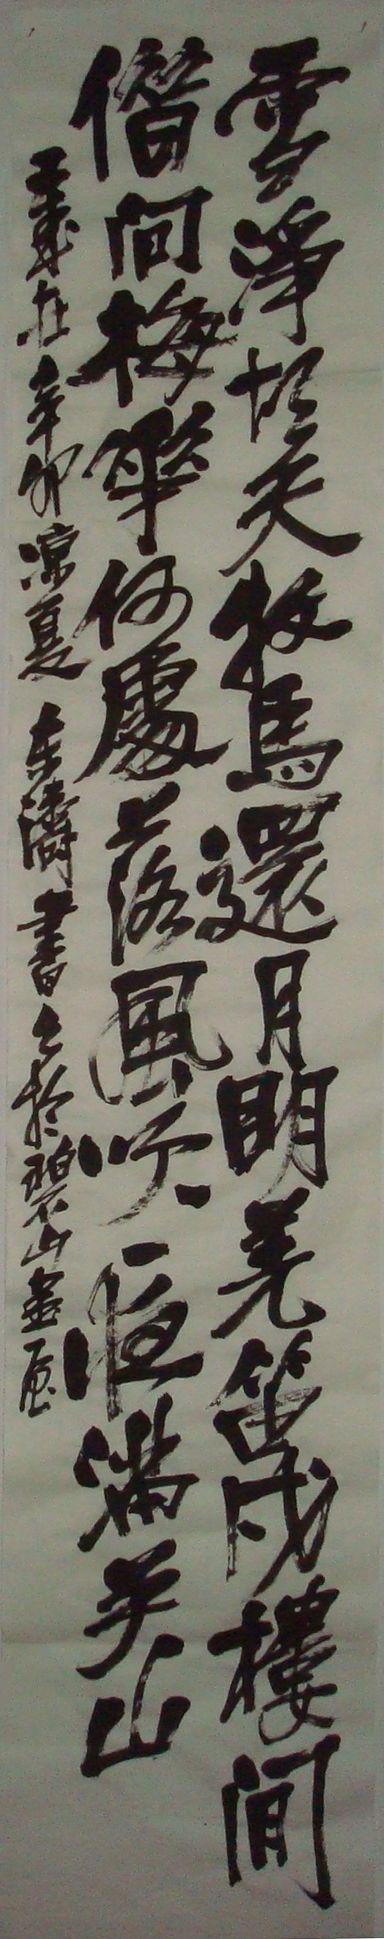 雪淨胡天牧馬還月明羌笛戍樓間
借問梅華何處落風吹一夜滿关山
歲在辛卯凉夏 东濤書之於碧山畫屋